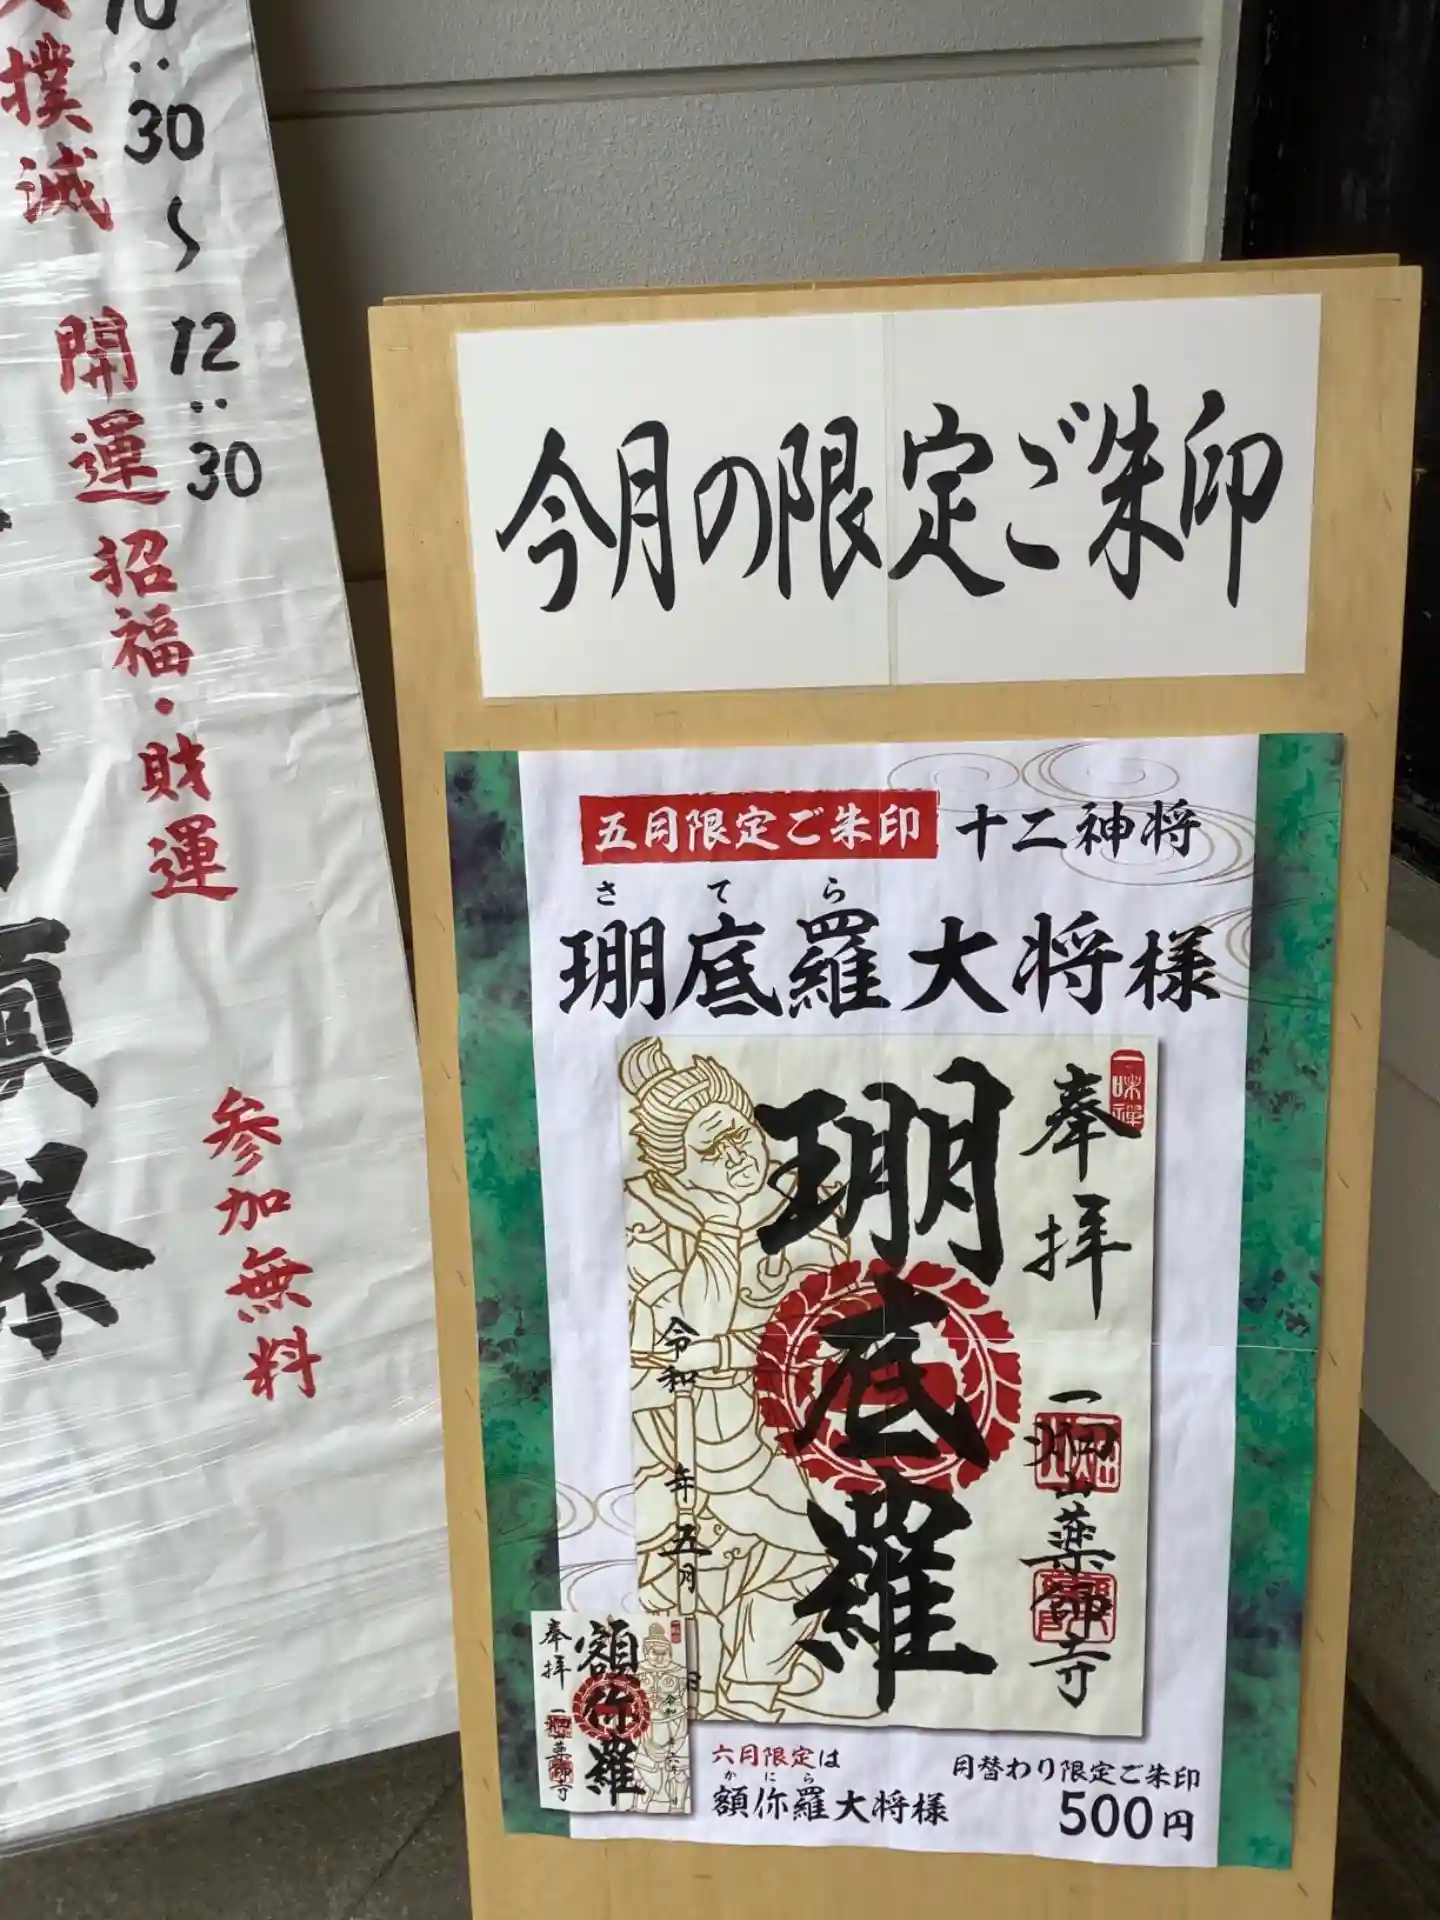 今月の限定ご朱印
五月限定ご朱印 十二神将
さてら
珊底羅大将様
奉拝
珊底羅
一畑山薬師寺
令和 年五月 日
奉拝
額你羅
一畑山薬師寺
六月限定は
かにら
額你羅大将様
月替わり限定ご朱印
500円
30〜12:30
撲滅 開運招福・財運
参加無料
祭